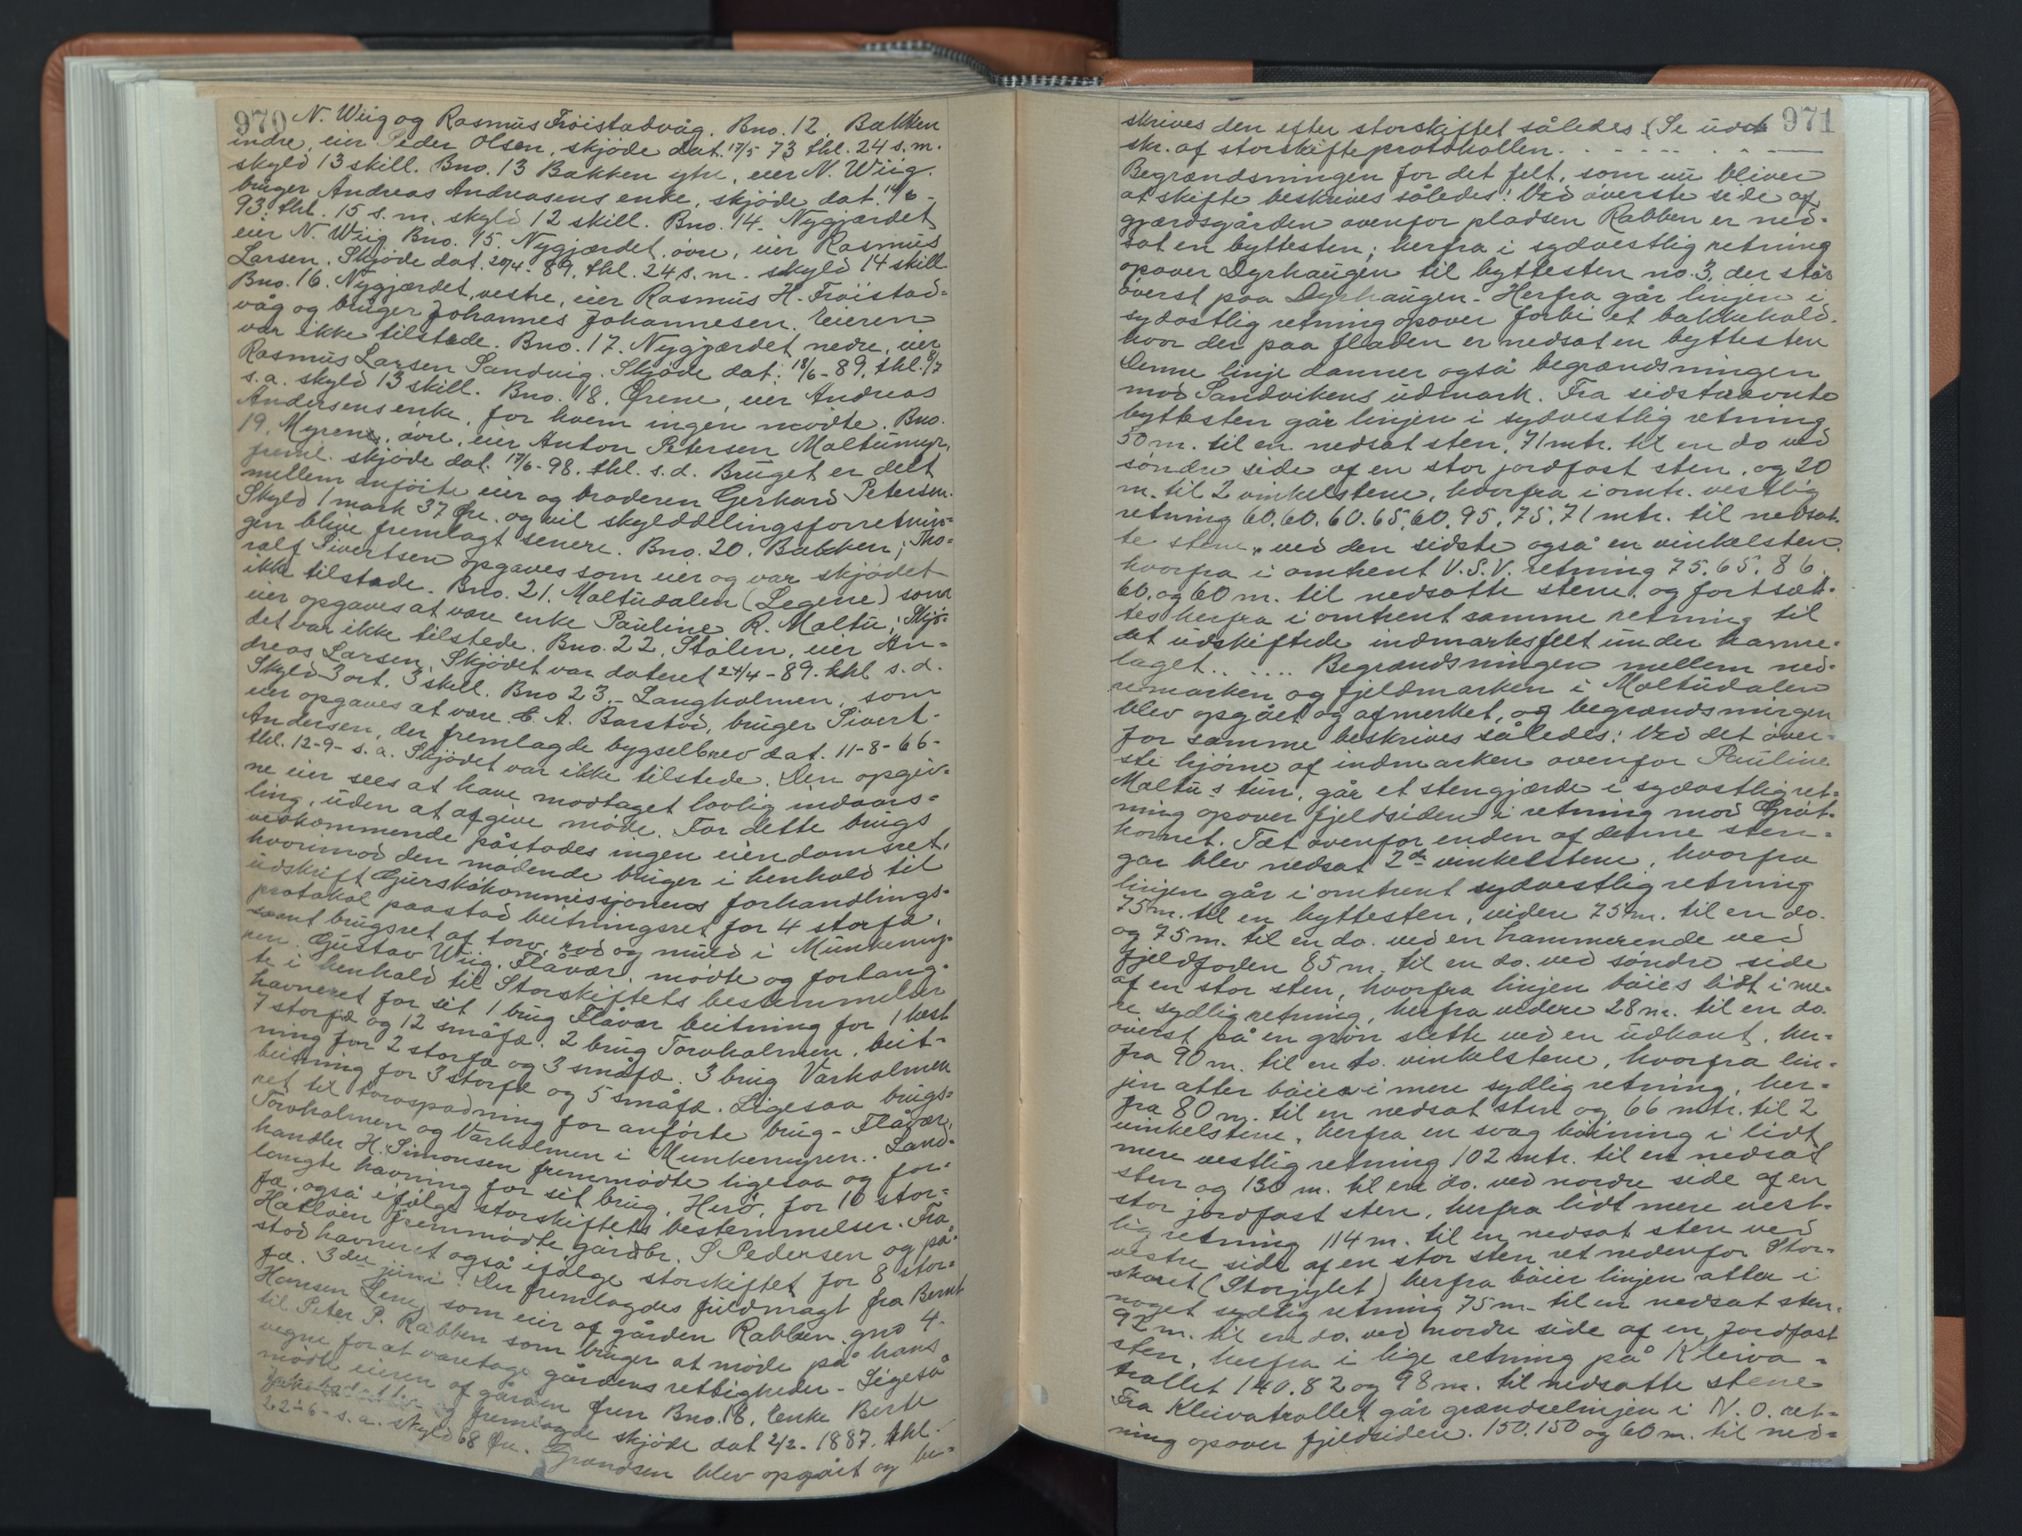 970 N. Wiig og Rasmus Frøistadvåg. Bno. 12. Bakken
indre, eier Peder Olsen, skjøde dat. 17/5 73 thl. 24 s.m.
skyld 13 skill. Bno. 13 Bakken ytre, eier N. Wiig.
bruger Andreas Andreasens enke, skjøde dat. 14/6-
93. thl. 15 s.m. skyld 12 skill. Bno. 14. Nygjærdet
eier N. Wiig Bno. 15. Nygjærdet, øvre, eier Rasmus
Larsen. Skjøde dat. 29/4-89. thl. 24 s.m. skyld 14 skill
Bno. 16. Nygjærdet, vestre, eier Rasmus H. Frøistad-
våg og bruger Johannes Johannesen. Eieren
var ikke tilstede. Bno. 17. Nygjærdet nedre, eier
Rasmus Larsen Sandvig. Skjøde dat. 18/6-89. thl. 8/7
s.a. skyld 13 skill. Bno. 18. Ørene, eier Andreas
Andersens enke, for hvem ingen mødte. Bno.
19. Myrene, øvre, eier Anton Petersen Maltumyr,
freml. skjøde dat. 17/6-98. thl. s.d. Bruget er delt
mellem anførte eier og broderen Gerhard Petersen.
Skyld 1 mark 37 Øre. og vil skylddelingsforretnin-
gen blive fremlagt senere. Bno. 20. Bakken; Tho-
ralf Sivertsen opgaves som eier og var skjødet
ikke tilstede. Bno. 21. Maltudalen (Legene) som
eier opgaves at være enke Pauline R. Maltu; Skjø-
det var ikke tilstede. Bno. 22. Stølen, eier An-
dreas Larsen. Skjødet var dateret 24/4-89. thl s.d.
Skyld 3 ort. 3 skill. Bno 23. Langholmen, som
eier opgaves at være E. A. Barstad, bruger Sivert
Andersen, der fremlagde bygselbrev dat. 11-8-66-
thl. 12-9- s.a. Skjødet var ikke tilstede. Den opgiv-
ne eier sees at have modtaget lovlig indvars-
ling, uden at afgive møde. For dette brugs
vedkommende påstodes ingen eiendomsret,
hvorimod den mødende bruger i henhold til
udskrift Gurskøkommissjonens forhandlings-
protokol paastod beitningsret for 4 storfæ,
samt brugsret af torv, rod og muld i Munkemy-
ren. Gustav Wiig, Flåvær, mødte og forlang-
te i henhold til Storskiftets bestemmelser
havneret for sit 1 brug Flåvær beitning for 1 hest
7 storfæ og 12 småfæ. 2 brug Torvholmen, beit-
ning for 2 storfæ og 3 småfæ. 3 brug Varholmen
beitning for 3 storfæ og 5 småfæ. Ligesaa brugs-
ret til torvspadning for anførte brug - Flåvær,
Torvholmen og Varholmen i Munkemyren. Land-
handler H. Simonsen fremmødte ligesaa og for-
langte havning for sit brug, Herø, for 10 stor-
fæ, også ifølge storskiftets bestemmelser. Fra
Hatløen fremmødte gårdbr. S Pedersen og på-
stod havneret også ifølge storskiftet for 8 stor-
fæ. 3die juni. Der fremlagdes fuldmagt fra Bernt
Hansen Lene, som eier af gården Rabben gno 4-
til Peter P. Rabben som bruger at møde på hans
vegne for at varetage gårdens rettigheder - Ligeså
mødte eieren af gården Øren Bno. 18. Enke Berte
Jakobsdatter og fremlagde skjøde dat 2/2-1887. thl.
22-6- s.a. skyld 68 Øre. Grændsen blev opgået og be-
971
skrives den efter storskiftet således. (Se udsk
skr. af storskifteprotokollen. - - - - -
Begrændsningen for det felt, som nu bliver
at skifte beskrives således: Ved øverste side af
gjærdsgården ovenfor pladsen Rabben er ned-
sat en byttesten; herfra i sydvestlig retning
opover Dyrhaugen til byttesten no. 3, der står
øverst paa Dyrhaugen - Herfra går linjen i
sydostlig retning opover forbi et bakkehold.
hvor der paa fladen er nedsat en byttesten
Denne linje danner også begrændsningen
mod Sandvikens udmark. Fra sidstnævnte
byttesten går linjen i sydvestlig retning
50 m. til en nedsat sten, 71 mtr. til en do ved
søndre side af en stor jordfast sten, og 20
m. til 2 vinkelstene, hvorfra i omtr. vestlig
retning 60. 60. 60. 65. 60. 95. 75. 71 mtr. til nedsat-
te stene, ved den sidste også en vinkelsten.
hvorfra i omtrent V.S.V. retning 75. 65. 86.
60. og 60 m. til nedsatte stene, og fortsæt-
tes herfra i omtrent samme retning til
det udskiftede indmarksfelt under hamre-
laget. . . . . . Begrændsningen mellem ned-
remarken og fjeldmarken i Maltudalen
blev opgået og afmerket, og begrændsningen
for samme beskrives således: Ved det øver-
ste hjørne af indmarken ovenfor Pauline
Maltus tun, går et stengjærde i sydostlig ret-
ning opover fjeldsiden i retning mod Grøt-
hornet. Tæt ovenfor enden af denne sten-
gar blev nedsat 2de vinkelstene, hvorfra
linjen går i omtrent sydvestlig retning
75 m. til en byttesten, videre 75 m. til en do.
og 75 m. til en do. ved en hammerende ved
fjeldfoden 85 m. til en do. ved søndre side
af en stor sten, hvorfra linjen bøies lidt i me-
re sydlig retning, herfra videre 28 m. til en do.
øverst på en grøn slette ved en udkant, her-
fra 90 m. til en do. vinkelstene, hvorfra lin-
jen atter bøies i mere sydlig retning, her-
fra 80 m. til en nedsat sten og 66 mtr. til 2
vinkelstene, herfra en svag bøining i lidt
mere vestlig retning 102 mtr. til en nedsat
sten og 130 m. til en do. ved nordre side af en
stor jordfast sten, herfra lidt mere vest-
lig retning 114 m. til en nedsat sten ved
vestre side af en stor sten ret nedenfor Stor-
skaret (Storjylet) herfra bøier linjen atter i
noget sydlig retning 75 m. til en nedsat sten.
92 m. til en do. ved nordre side af en Jordfast
sten, herfra i lige retning på Kleiva-
trollet 140. 82 og 98 m. til nedsatte stene
Fra Kleivatrollet går grændselinjen i N.O. ret-
ning opover fjeldsiden. 150. 150 og 60 m. til ned-